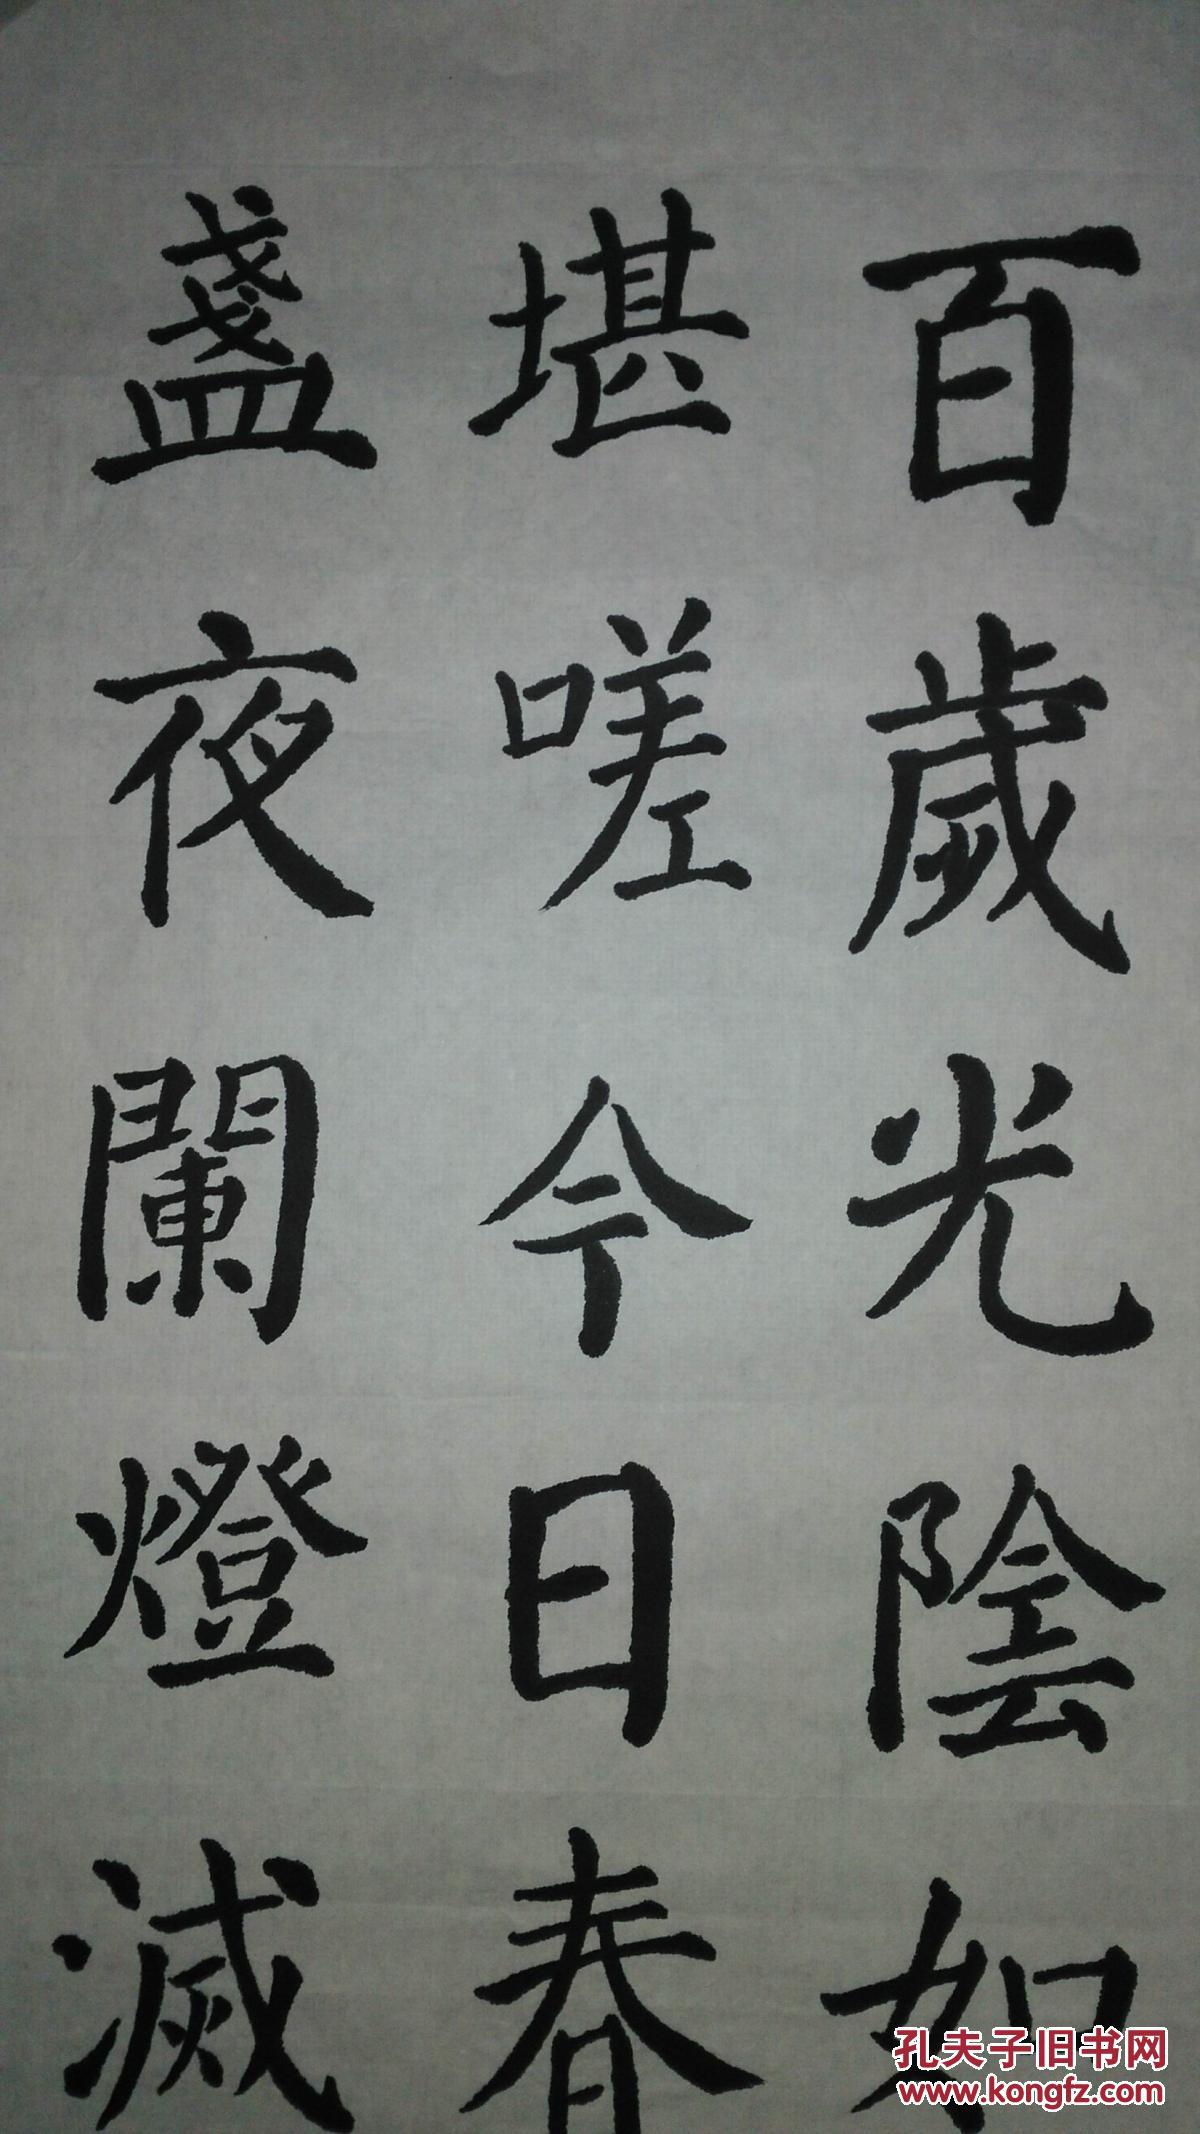 百歲光陰如
堪嗟今日春
盞夜闌燈滅
孔夫子旧书网
www.kongfz.com